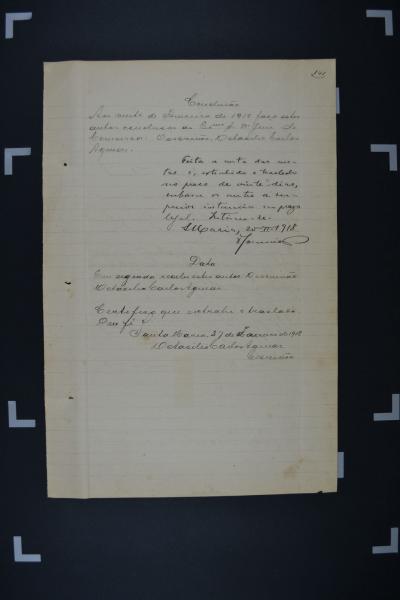 141
Conclusão
Aos vinte de Fevereiro de 1918 faço estes
autos conclusos ao Exmo Sr. Dr. Juiz de
Comarca. Escrivão, Octacilio Carlos
Aguiar.
Feita a conta das cus-
tas e, extrahido o traslado
no praso de vinte dias,
subam os autos á su-
perior instancia no prazo
legal. Intime-se.
S. Maria, 20-II-1918.
Data
Em seguida recebi estes autos. O escrivão
Octacilio Carlos Aguiar
Certifico que extrahi o traslado.
Dou fé.
Santa Maria, 27 de Fevereiro de 1918
Octacilio Carlos Aguiar
Escrivão